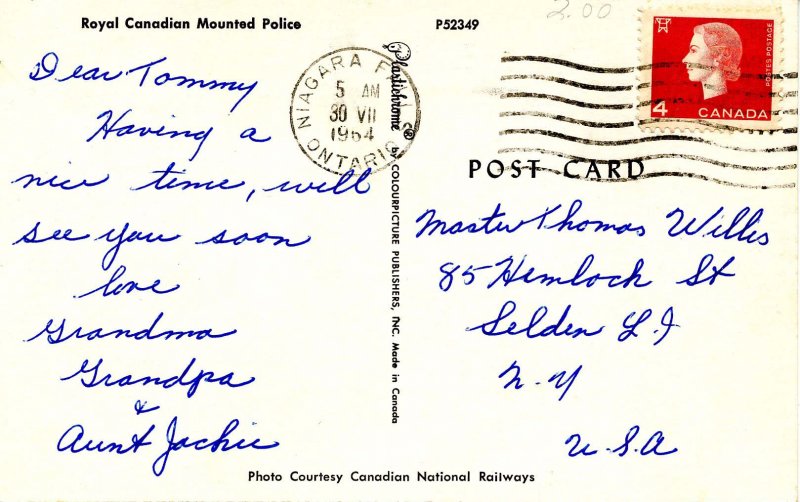 Royal Canadian Mounted Police
P52349
2.00
Dear Tommy
Having a
nice time, will
see you soon
love
Grandma
Grandpa
&
Aunt Jackie
NIAGARA FALLS
5 AM
30 VII
1964
ONTARIO
Plastichrome ® by COLOURPICTURE PUBLISHERS, INC. Made in Canada
POSTES POSTAGE
4 CANADA
POST CARD
Master Thomas Willis
85 Hemlock St
Selden L.I
N.Y
U.S.A
Photo Courtesy Canadian National Railways